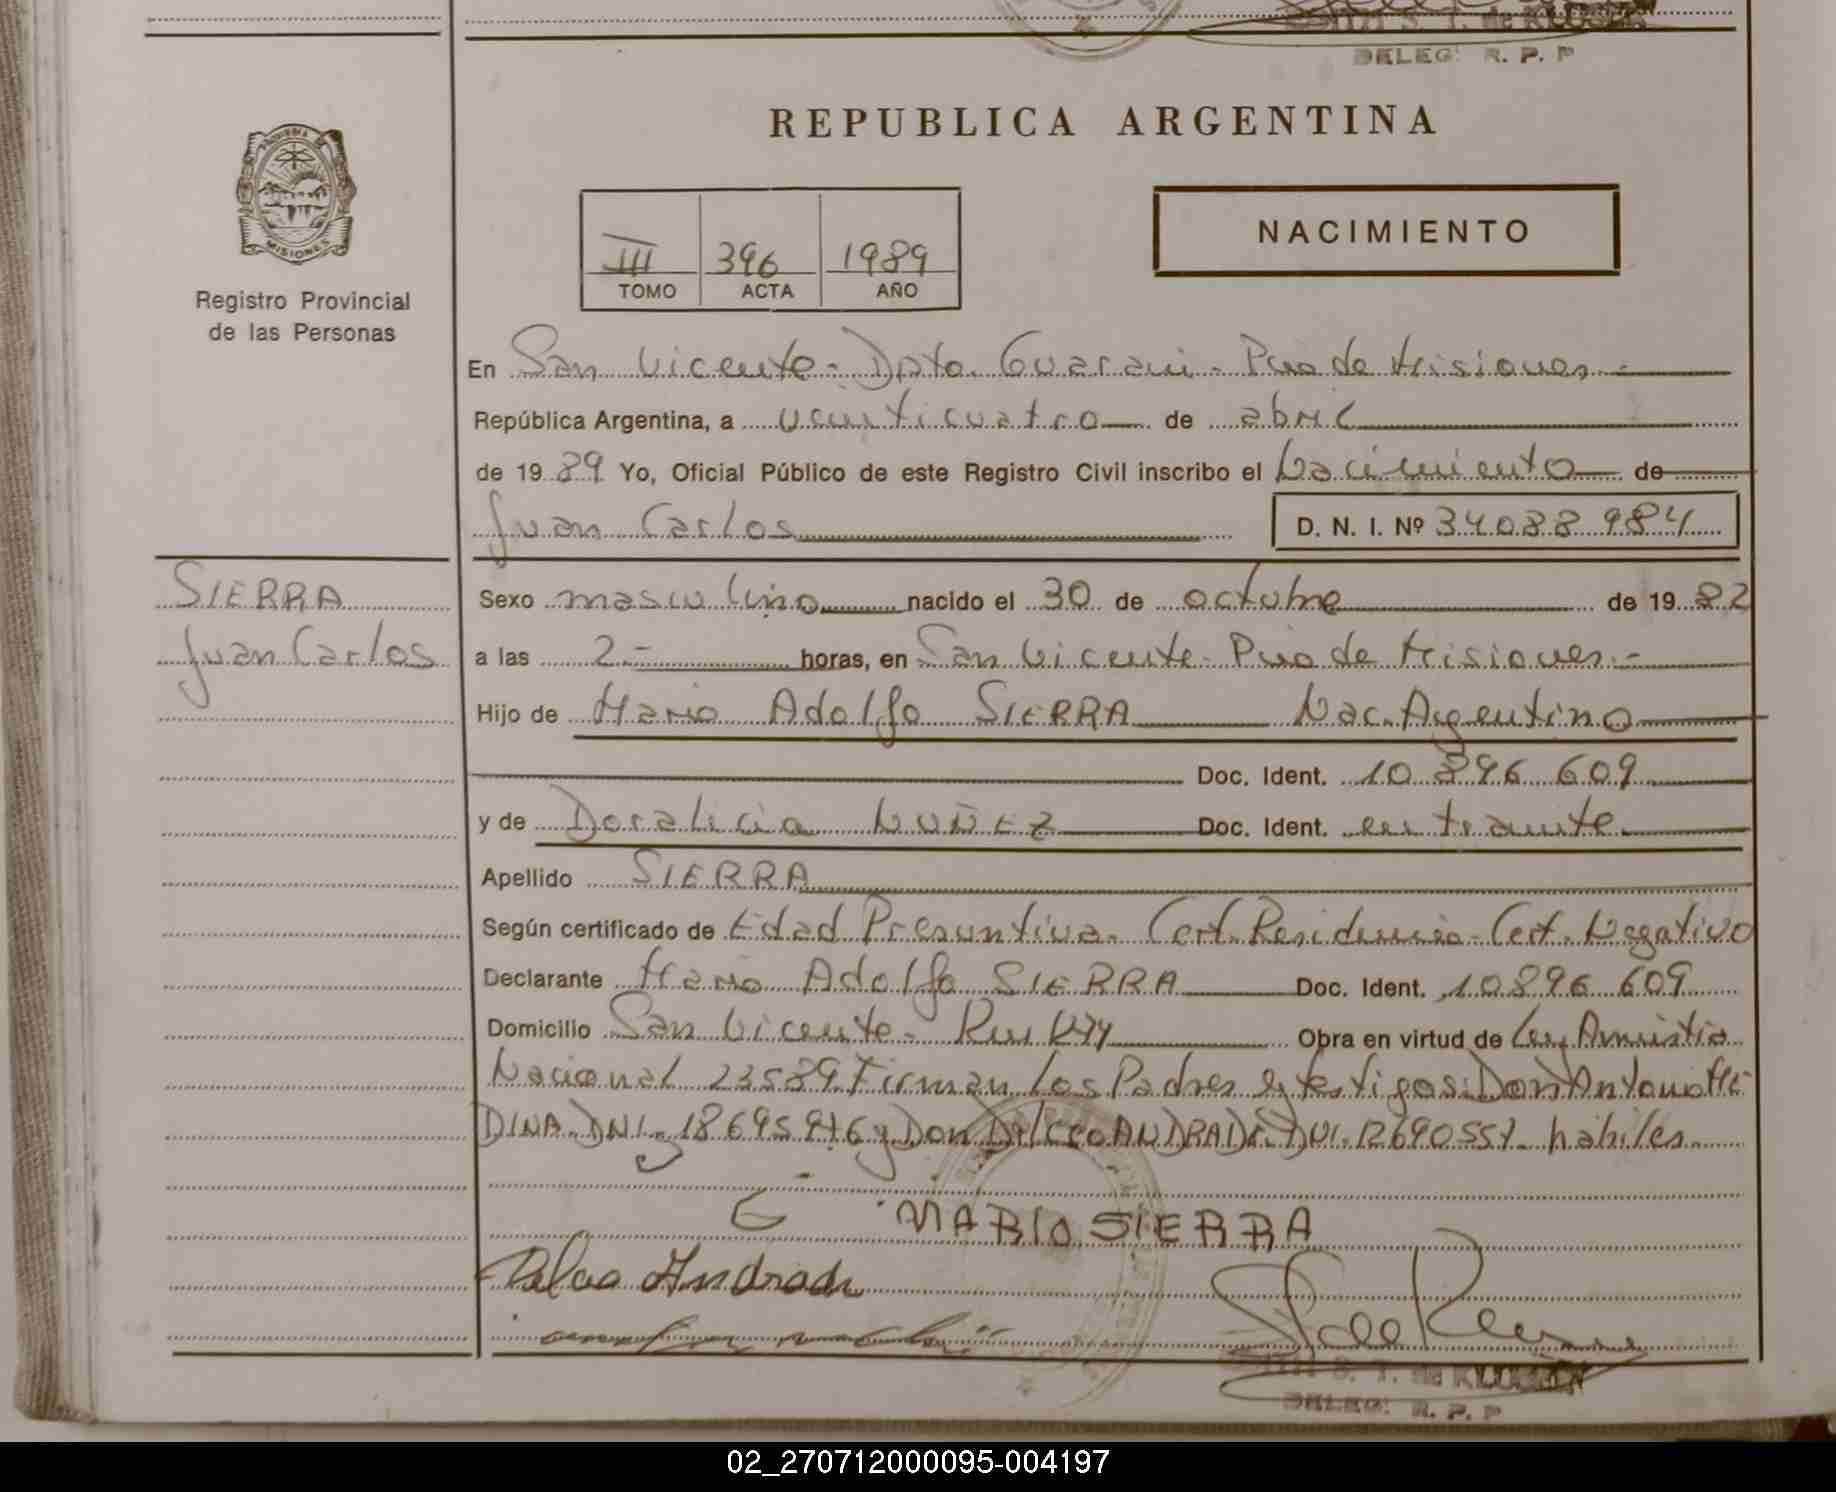 DELEG. R. P. P
REPUBLICA ARGENTINA
PROVINCIA
MISIONES
Registro Provincial
de las Personas
III 396 1989
TOMO ACTA AÑO
NACIMIENTO
En San Vicente - Dpto. Guarani - Pcia de Misiones.-
República Argentina, a veinticuatro de abril
de 1989 Yo, Oficial Público de este Registro Civil inscribo el Nacimiento de
Juan Carlos D. N. I. Nº 34.088.984
SIERRA
Juan Carlos
Sexo masculino nacido el 30 de octubre de 1982
a las 2.- horas, en San Vicente - Pcia de Misiones.-
Hijo de Mario Adolfo SIERRA Nac. Argentino
Doc. Ident. 10.896.609
y de Doralicia NUÑEZ Doc. Ident. en tramite.
Apellido SIERRA
Según certificado de Edad Presuntiva. Cert. Residencia - Cert. Negativo
Declarante Mario Adolfo SIERRA Doc. Ident. 10.896.609
Domicilio San Vicente - Obra en virtud de Ley Amnistia
Nacional 23589. Firman los Padres y testigos: Don Antonio ME
DINA. DNI. y Don ANDRADE. DNI. habiles.
MARIO SIERRA
Andrade
S. T. de
DELEG. R. P. P
02_270712000095-004197